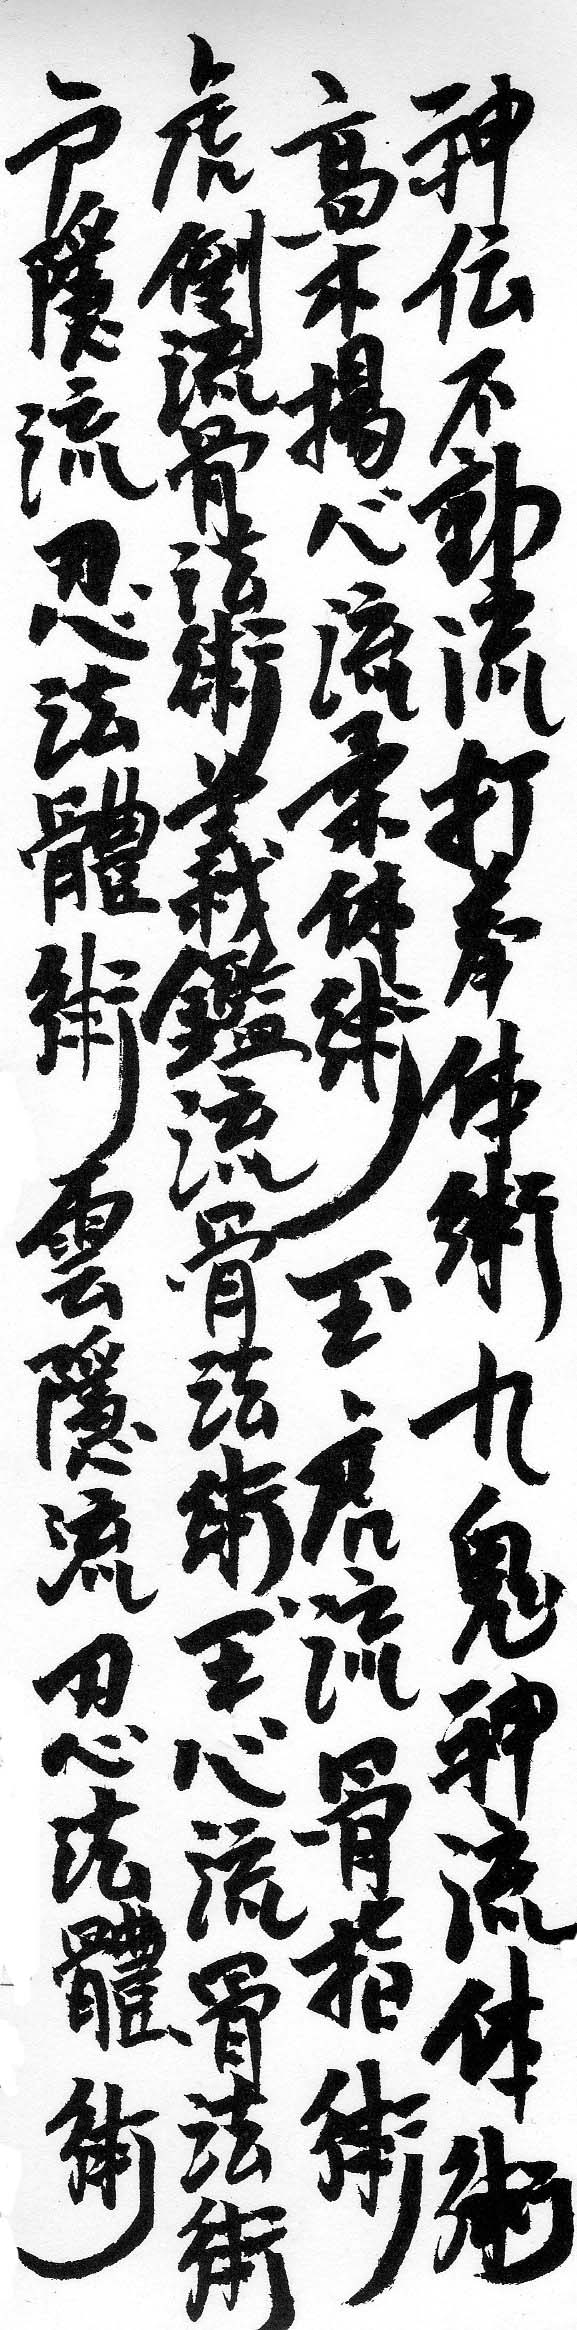 神伝不動流打拳体術九鬼神流体術
高木揚心流柔体術玉虎流骨指術
虎倒流骨法術義鑑流骨法術玉心流骨法術
戸隠流忍法體術雲隠流忍法體術